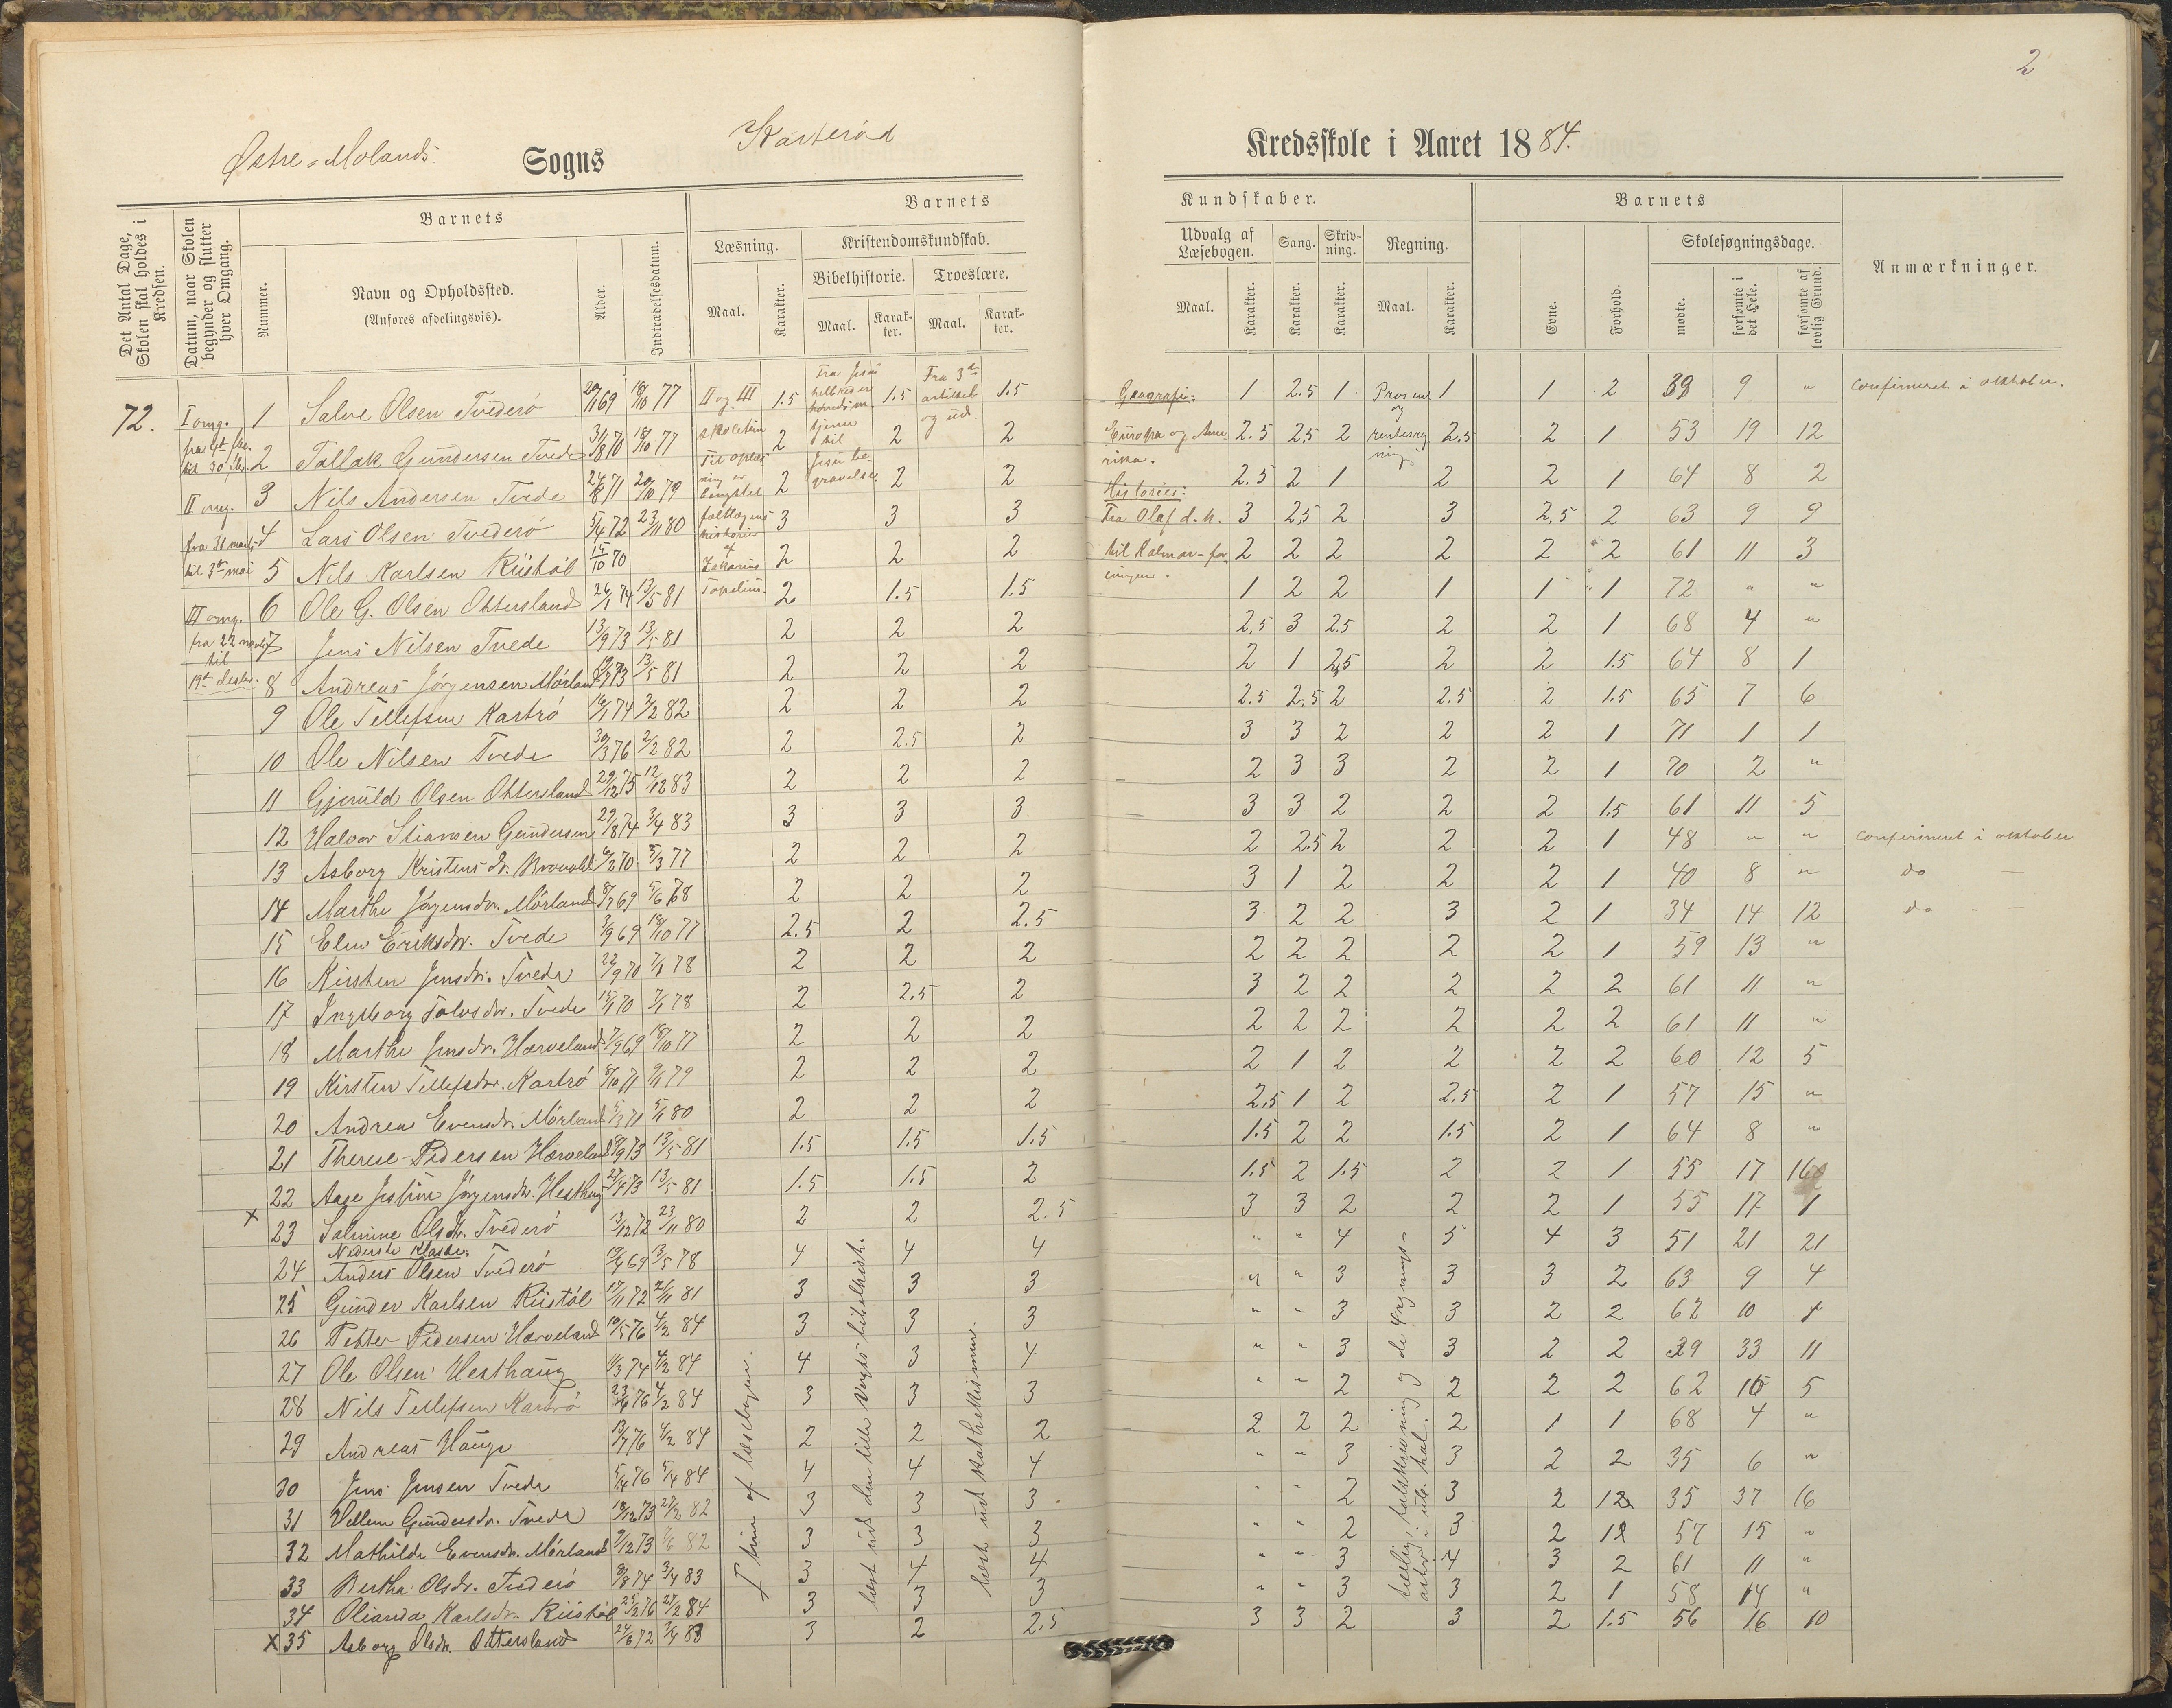 2
Østre-Molands Sogns Karterød Kredsskole i Aaret 1884.
Det Antal Dage, Skolen skal holdes i Kredsen.
Datum, naar Skolen begynder og slutter hver Omgang.
Barnets
Nummer.
Navn og Opholdssted. (Anføres afdelingsvis).
Alder.
Indtrædelsesdatum.
Barnets Kundskaber.
Læsning.
Maal.
Karakter.
Kristendomskundskab.
Bibelhistorie.
Maal.
Karakter.
Troeslære.
Maal.
Karakter.
Udvalg af Læsebogen.
Maal.
Karakter.
Sang.
Karakter.
Skrivning.
Karakter.
Regning.
Maal.
Karakter.
Barnets
Evne.
Forhold.
Skolesøgningsdage.
mødte.
forsømte i det Hele.
forsømte af lovlig Grund.
Anmærkninger.
72.
I omg.
II omg.
fra 31 marts
til 3die mai
III omg.
til
II og III
Fra 3die artikel og ud.
Geografi:
Europa og Amerika.
Historie:
Fra Olaf d. h.
til Kalmar-foreningen.
Prosent og rentereg ning
1 Salve Olsen Tvederö 20/11 69 18/10 77 1.5 1.5 1.5 1 2.5 1 1 1 2 39 9 " Confirmeret i oktober.
2 Tallak Gundersen Tvede 31/8 70 18/10 77 2 2 2 2.5 2.5 2 2.5 2 1 53 19 12
3 Nils Andersen Tvede 24/8 71 20/10 79 2 2 2 2.5 2 1 2 2 1 64 8 2
4 Lars Olsen Tvederö 5/4 72 23/11 80 3 3 3 3 2.5 2 3 2.5 2 63 9 9
5 Nils Karlsen Riistöl 15/10 70 2 2 2 2 2 2 2 2 2 61 11 3
6 Ole G. Olsen Ottersland 26/1 74 13/5 81 2 1.5 1.5 1 2 2 1 1 1 72 " "
7 Jens Nilsen Tvede 13/9 73 13/5 81 2 2 2 2.5 3 2.5 2 2 1 68 4 "
8 Andreas Jörgensen Mörland 73 13/5 81 2 2 2 2 1 2.5 2 2 1.5 64 8 1
9 Ole Tellefsen Kartrö 16/1 74 2/2 82 2 2 2 2.5 2.5 2 2.5 2 1.5 65 7 6
10 Ole Nilsen Tvede 30/3 76 2/2 82 2 2.5 2 3 3 2 2 2 1 71 1 1
11 Gjeruld Olsen Ottersland 29/12 75 12/12 83 2 2 2 2 3 3 2 2 1 70 2 "
12 Halvor Stiansen Gundersen 29/8 74 3/4 83 3 3 3 3 3 2 2 2 1.5 61 11 5
13 Asborg Kristensdr. 6/2 70 5/3 77 2 2 2 2 2.5 2 2 2 1 48 " " Confirmeret i oktober
14 Marthe Jörgensdr. Mörland 8/7 69 5/6 78 2 2 2 3 1 2 2 2 1 40 8 " do —
15 Elen Eriksdr. Tvede 3/9 69 18/10 77 2.5 2 2.5 3 2 2 3 2 1 34 14 12 do —
16 Kirsten Jensdr. Tvede 22/9 70 7/1 78 2 2 2 2 2 2 2 2 1 59 13 "
17 Ingeborg Salvesdr. Tvede 15/1 70 7/1 78 2 2.5 2 3 2 2 2 2 2 61 11 "
18 Marthe Jensdr. Harveland 7/9 69 18/10 77 2 2 2 2 2 2 2 2 2 61 11 "
19 Kirsten Tellefsdr. Kartrö 8/10 71 9/11 79 2 2 2 2 1 2 2 2 2 60 12 5
20 Andrea Evensdr. Mörland 5/3 71 5/1 80 2 2 2 2.5 1 2 2.5 2 1 57 15 "
21 Therese Pedersen Harveland 8/9 73 13/5 81 1.5 1.5 1.5 1.5 2 2 1.5 2 1 64 8 "
22 Aage Jesfine Jörgensdr. Hesthag 27/4 73 13/5 81 1.5 1.5 2 1.5 2 1.5 2 2 1 55 17 16
x 23 Salmine Olsdr. Tvederö 13/12 72 23/11 80 2 2 2.5 3 3 2 2 2 1 55 17 1
Nederste Klasse:
24 Anders Olsen Tvederö 69 13/5 78 4 4 4 " " 4 5 4 3 51 21 21
25 Gunder Karlsen Riistöl 17/11 72 2/11 81 3 3 3 " " 3 3 3 2 63 9 4
26 Petter Pedersen Harveland 10/5 76 4/2 84 3 3 3 " " 3 3 2 2 62 10
27 Ole Olsen Hesthaug 11/3 74 4/2 84 4 3 4 " " 3 3 2 2 39 33 11
28 Nils Tellefsen Kartrö 76 4/2 84 3 3 3 " " 2 2 2 2 62 10 5
29 Andreas Hauge 13/7 76 4/2 84 2 2 2 2 2 2 2 1 1 68 4 "
30 Jens Jensen Tvede 76 5/4 84 4 4 4 " " 3 3 2 2 35 6 "
31 Vellem Gundersdr. Tvede 18/12 73 27/2 82 3 3 3 " " 2 3 2 12 35 37 16
32 Mathilde Evensdr. Mörland 9/12 73 82 3 3 3 " " 2 3 2 12 57 15 "
33 Bertha Olsdr. Tvederö 8/8 74 3/4 83 3 4 4 " " 3 4 3 2 61 11 "
34 Olianda Karlsdr. Riistöl 25/2 76 27/2 84 3 3 3 " " 3 3 2 1 58 14 "
x 35 Asborg Olsdr. Ottersland 24/6 72 3/4 83 3 2 2.5 3 3 2 3 2 1.5 56 16 10
I trin af læsebogen.
læst ud den lille Vogts bibelhist.
læst ud Kathekismen.